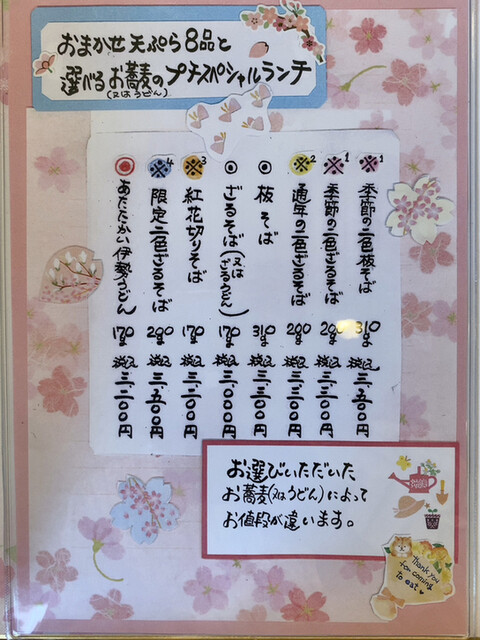 おまかせ天ぷら8品と
選べるお蕎麦のプチスペシャルランチ
(又はうどん)
※1 季節の二色板そば 310g 税込 三、五〇〇円
※1 季節の二色ざるそば 290g 税込 三、三〇〇円
※2 通年の二色ざるそば 290g 税込 三、三〇〇円
◎ 板そば 310g 税込 三、三〇〇円
◎ ざるそば(又はざるうどん) 170g 税込 三、〇〇〇円
※3 紅花切りそば 170g 税込 三、二〇〇円
※4 限定二色ざるそば 290g 税込 三、五〇〇円
◎ あたたかい伊勢うどん 170g 税込 三、二〇〇円
お選びいただいた
お蕎麦(又はうどん)によって
お値段が違います。
Thank you
for coming
to eat